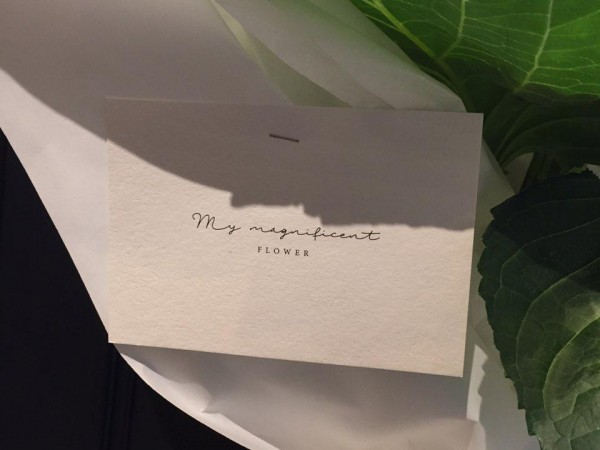 My magnificent
FLOWER